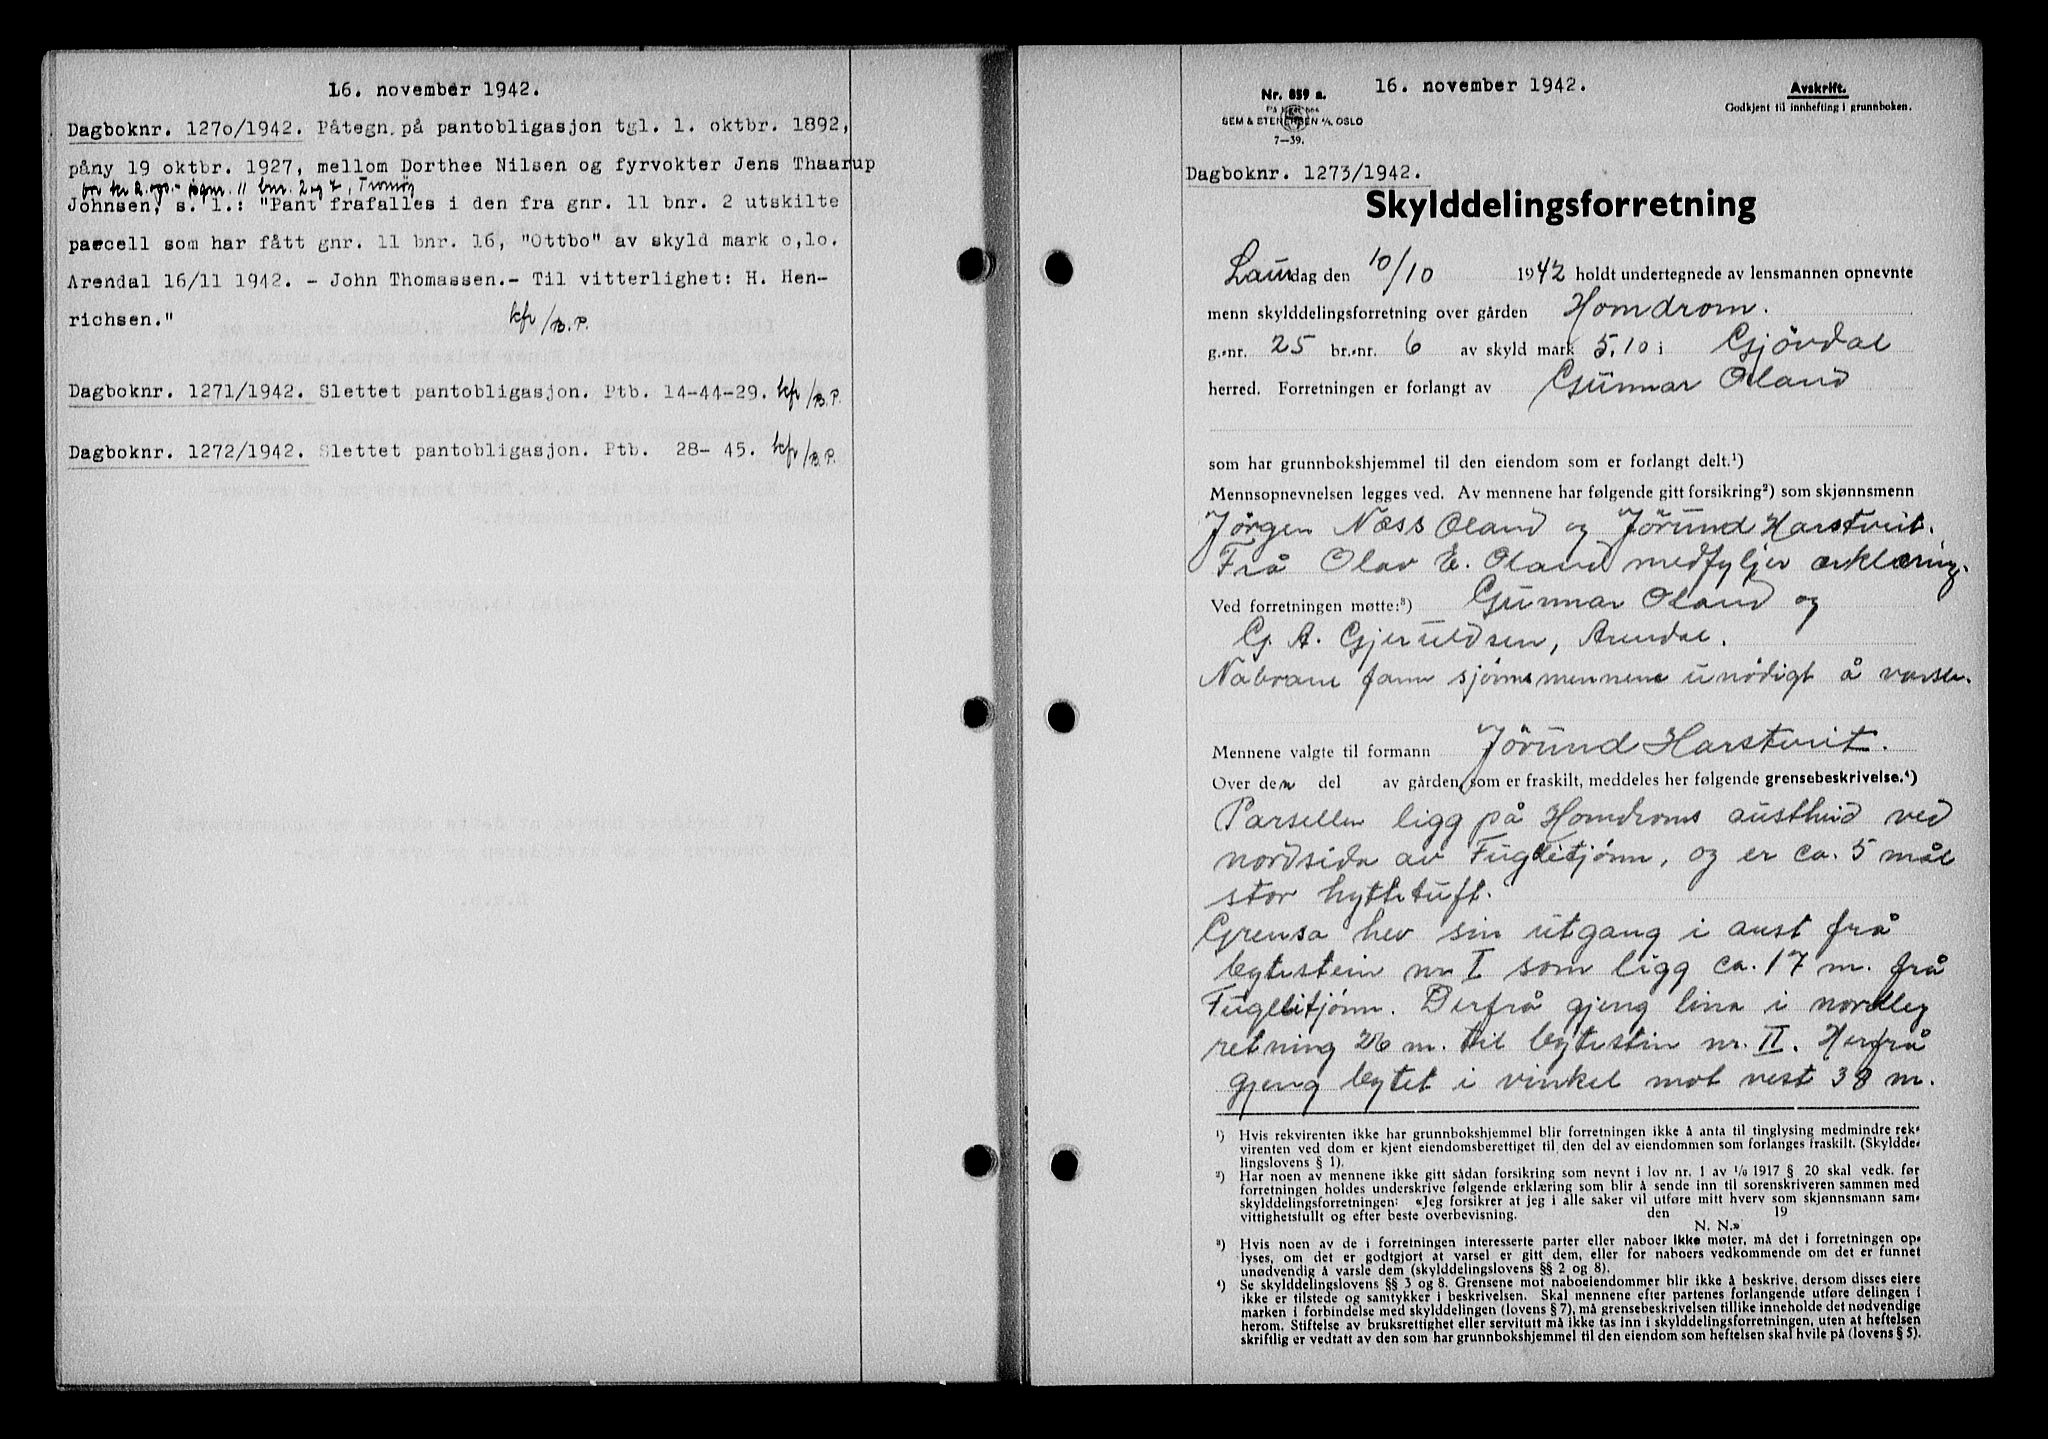 16. november 1942.
Dagboknr. 1270/1942. Påtegn. på pantobligasjon tgl. 1. oktbr. 1892,
påny 19 oktbr. 1927, mellom Dorthee Nilsen og fyrvokter Jens Thaarup
for kr. gnr. 11 bnr. 2 og 7, Tromøy
Johnsen, s. l.: "Pant frafalles i den fra gnr. 11 bnr. 2 utskilte
parcell som har fått gnr. 11 bnr. 16, "Ottbo" av skyld mark o,lo.
Arendal 16/11 1942. - John Thomassen.- Til vitterlighet: H. Hen-
richsen." kfr/B.P.
Dagboknr. 1271/1942. Slettet pantobligasjon. Ptb. 14-44-29. kfr/B.P.
Dagboknr. 1272/1942. Slettet pantobligasjon. Ptb. 28- 45. kfr/B.P.
16. november 1942.
Nr. 859 a.
SEM & STENERSEN A/S, OSLO
7-39.
Avskrift.
Godkjent til innhefting i grunnboken.
Dagboknr. 1273/1942.
Skylddelingsforretning
Laurdag den 10/10 1942 holdt undertegnede av lensmannen opnevnte
menn skylddelingsforretning over gården Homdrom.
g.-nr. 25 br.-nr. 6 av skyld mark 5.10 i Gjövdal
herred. Forretningen er forlangt av Gunnar Oland
som har grunnbokshjemmel til den eiendom som er forlangt delt.¹)
Mennsopnevnelsen legges ved. Av mennene har følgende gitt forsikring²) som skjønnsmenn
Jørgen Næss Oland og Jörund Harstveit.
Frå Olav E. Oland medfyljer erklæring.
Ved forretningen møtte:³) Gunnar Oland og
G. A. Gjeruldsen, Arendal.
Nabrane fann sjønnsmennene unödigt å varsle.
Mennene valgte til formann Jörund Harstveit.
Over den del av gården, som er fraskilt, meddeles her følgende grensebeskrivelse.⁴)
Parsellen ligg på Homdroms austheid ved
nordsida av Fuglleitjønn, og er ca. 5 mål
stor hyttetuft.
Grensa hev sin utgang i aust frå
bytestein nr I som ligg ca. 17 m. frå
Fugleitjønn. Derfrå gjeng lina i nordleg
retning 26 m. til bytestein nr. II. Herfrå
gjeng bytet i vinkel mot vest 38 m.
¹) Hvis rekvirenten ikke har grunnbokshjemmel blir forretningen ikke å anta til tinglysing medmindre rek-
virenten ved dom er kjent eiendomsberettiget til den del av eiendommen som forlanges fraskilt. (Skyldde-
lingslovens § 1).
²) Har noen av mennene ikke gitt sådan forsikring som nevnt i lov nr. 1 av 1/6 1917 § 20 skal vedk. før
forretningen holdes underskrive følgende erklæring som blir å sende inn til sorenskriveren sammen med
skylddelingsforretningen: «Jeg forsikrer at jeg i alle saker vil utføre mitt hverv som skjønnsmann sam-
vittighetsfullt og efter beste overbevisning. den 19
N. N.»
³) Hvis noen av de i forretningen interesserte parter eller naboer ikke møter, må det i forretningen op-
lyses, om det er godtgjort at varsel er gitt dem, eller for naboers vedkommende om det er funnet
unødvendig å varsle dem (skylddelingslovens §§ 2 og 8).
⁴) Se skylddelingslovens §§ 3 og 8. Grensene mot naboeiendommer blir ikke å beskrive, dersom disses eiere
ikke er tilstede og samtykker i beskrivelsen. Skal mennene efter partenes forlangende utføre delingen i
marken i forbindelse med skylddelingen (lovens § 7), må grensebeskrivelsen tillike inneholde det nødvendige
herom. Stiftelse av bruksrettighet eller servitutt må ikke tas inn i skylddelingsforretningen, uten at heftelsen
skriftlig er vedtatt av den som har grunnbokshjemmel til den eiendom som heftelsen skal hvile på (lovens § 5).